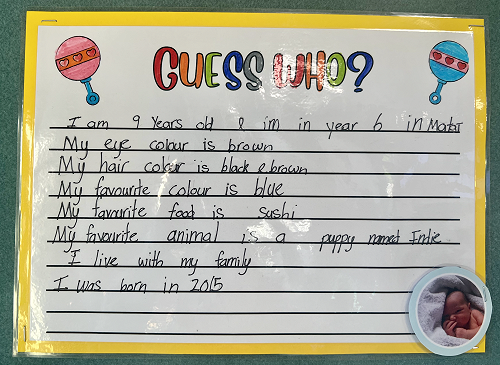 GUESS WHO?
I am 9 Years old & im in year 6 in Mata 1
My eye colour is brown
My hair colour is black & brown
My favourite colour is blue
My favourite food is sushi
My favourite animal is a puppy named Indie
I live with my family
I was born in 2015